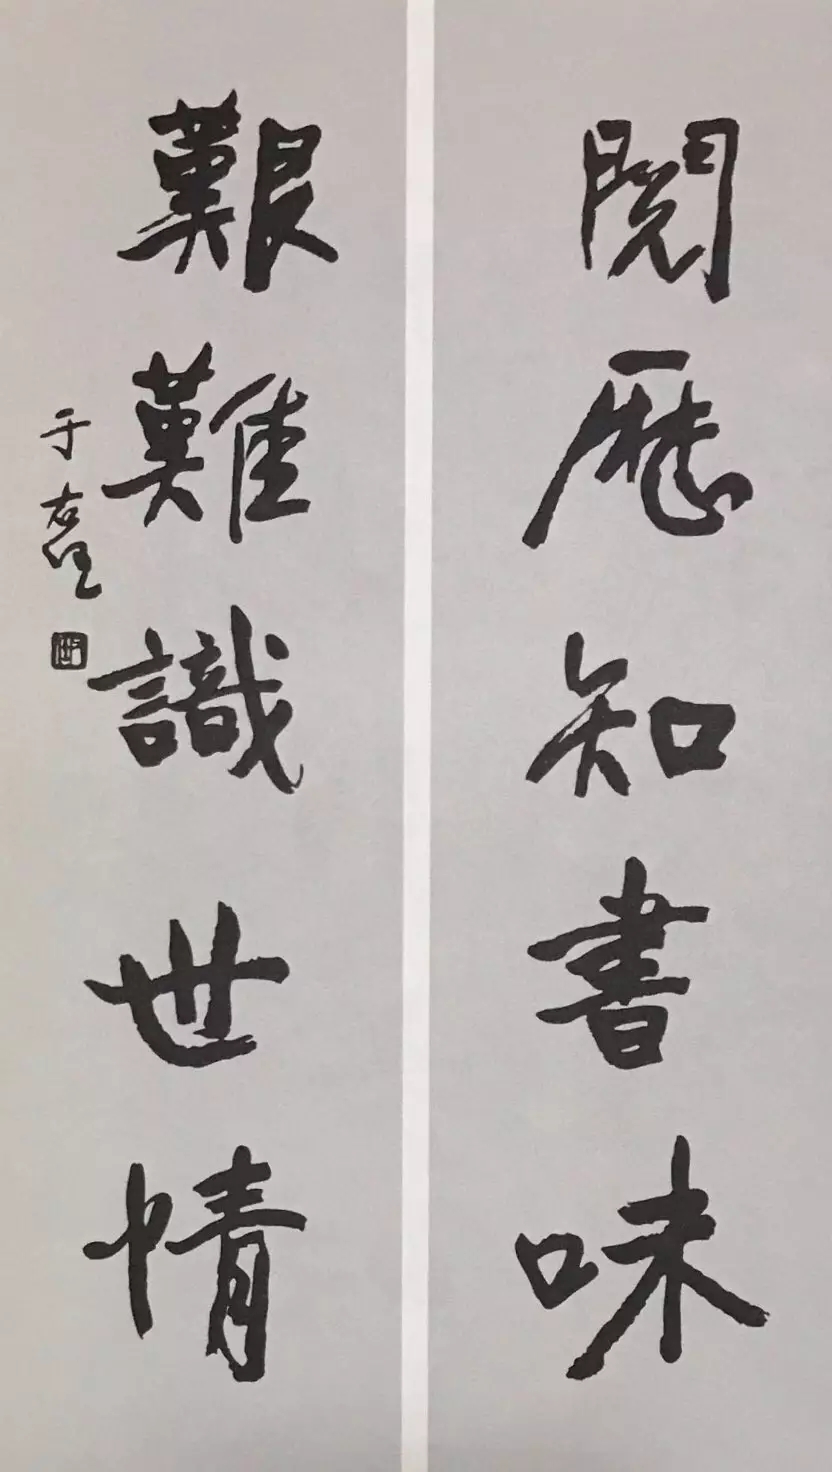 閱歷知書味
艱難識世情
于右任